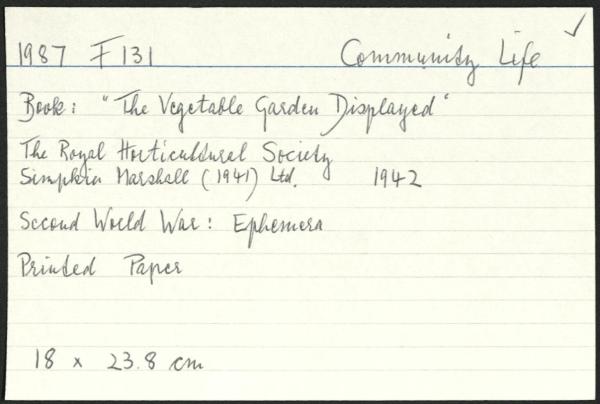 1987 F131 Community Life ✓
Book: "The Vegetable Garden Displayed"
The Royal Horticultural Society
Simpkin Marshall (1941) Ltd. 1942
Second World War: Ephemera
Printed Paper
18 x 23.8 cm